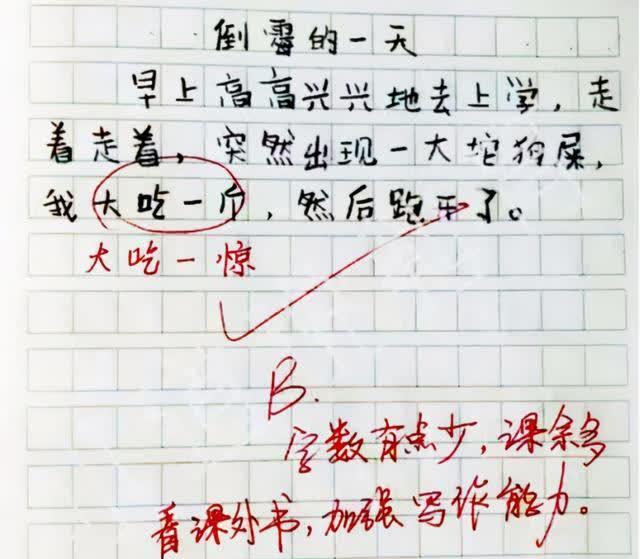 倒霉的一天
早上高高兴兴地去上学，走
着走着，突然出现一大坨狗屎，
我大吃一斤，然后跑开了。
大吃一惊
B.
字数有点少，课余多
看课外书，加强写作能力。